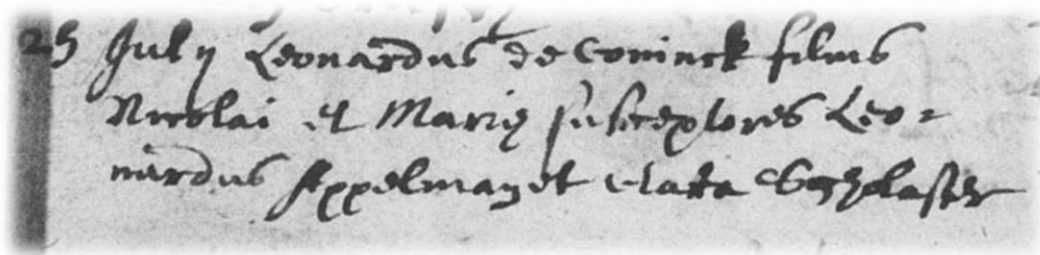 25 July Leonardus de Coninck filius
Nicolai et Marię susceptores Leo=
nardus Appelman et Clara